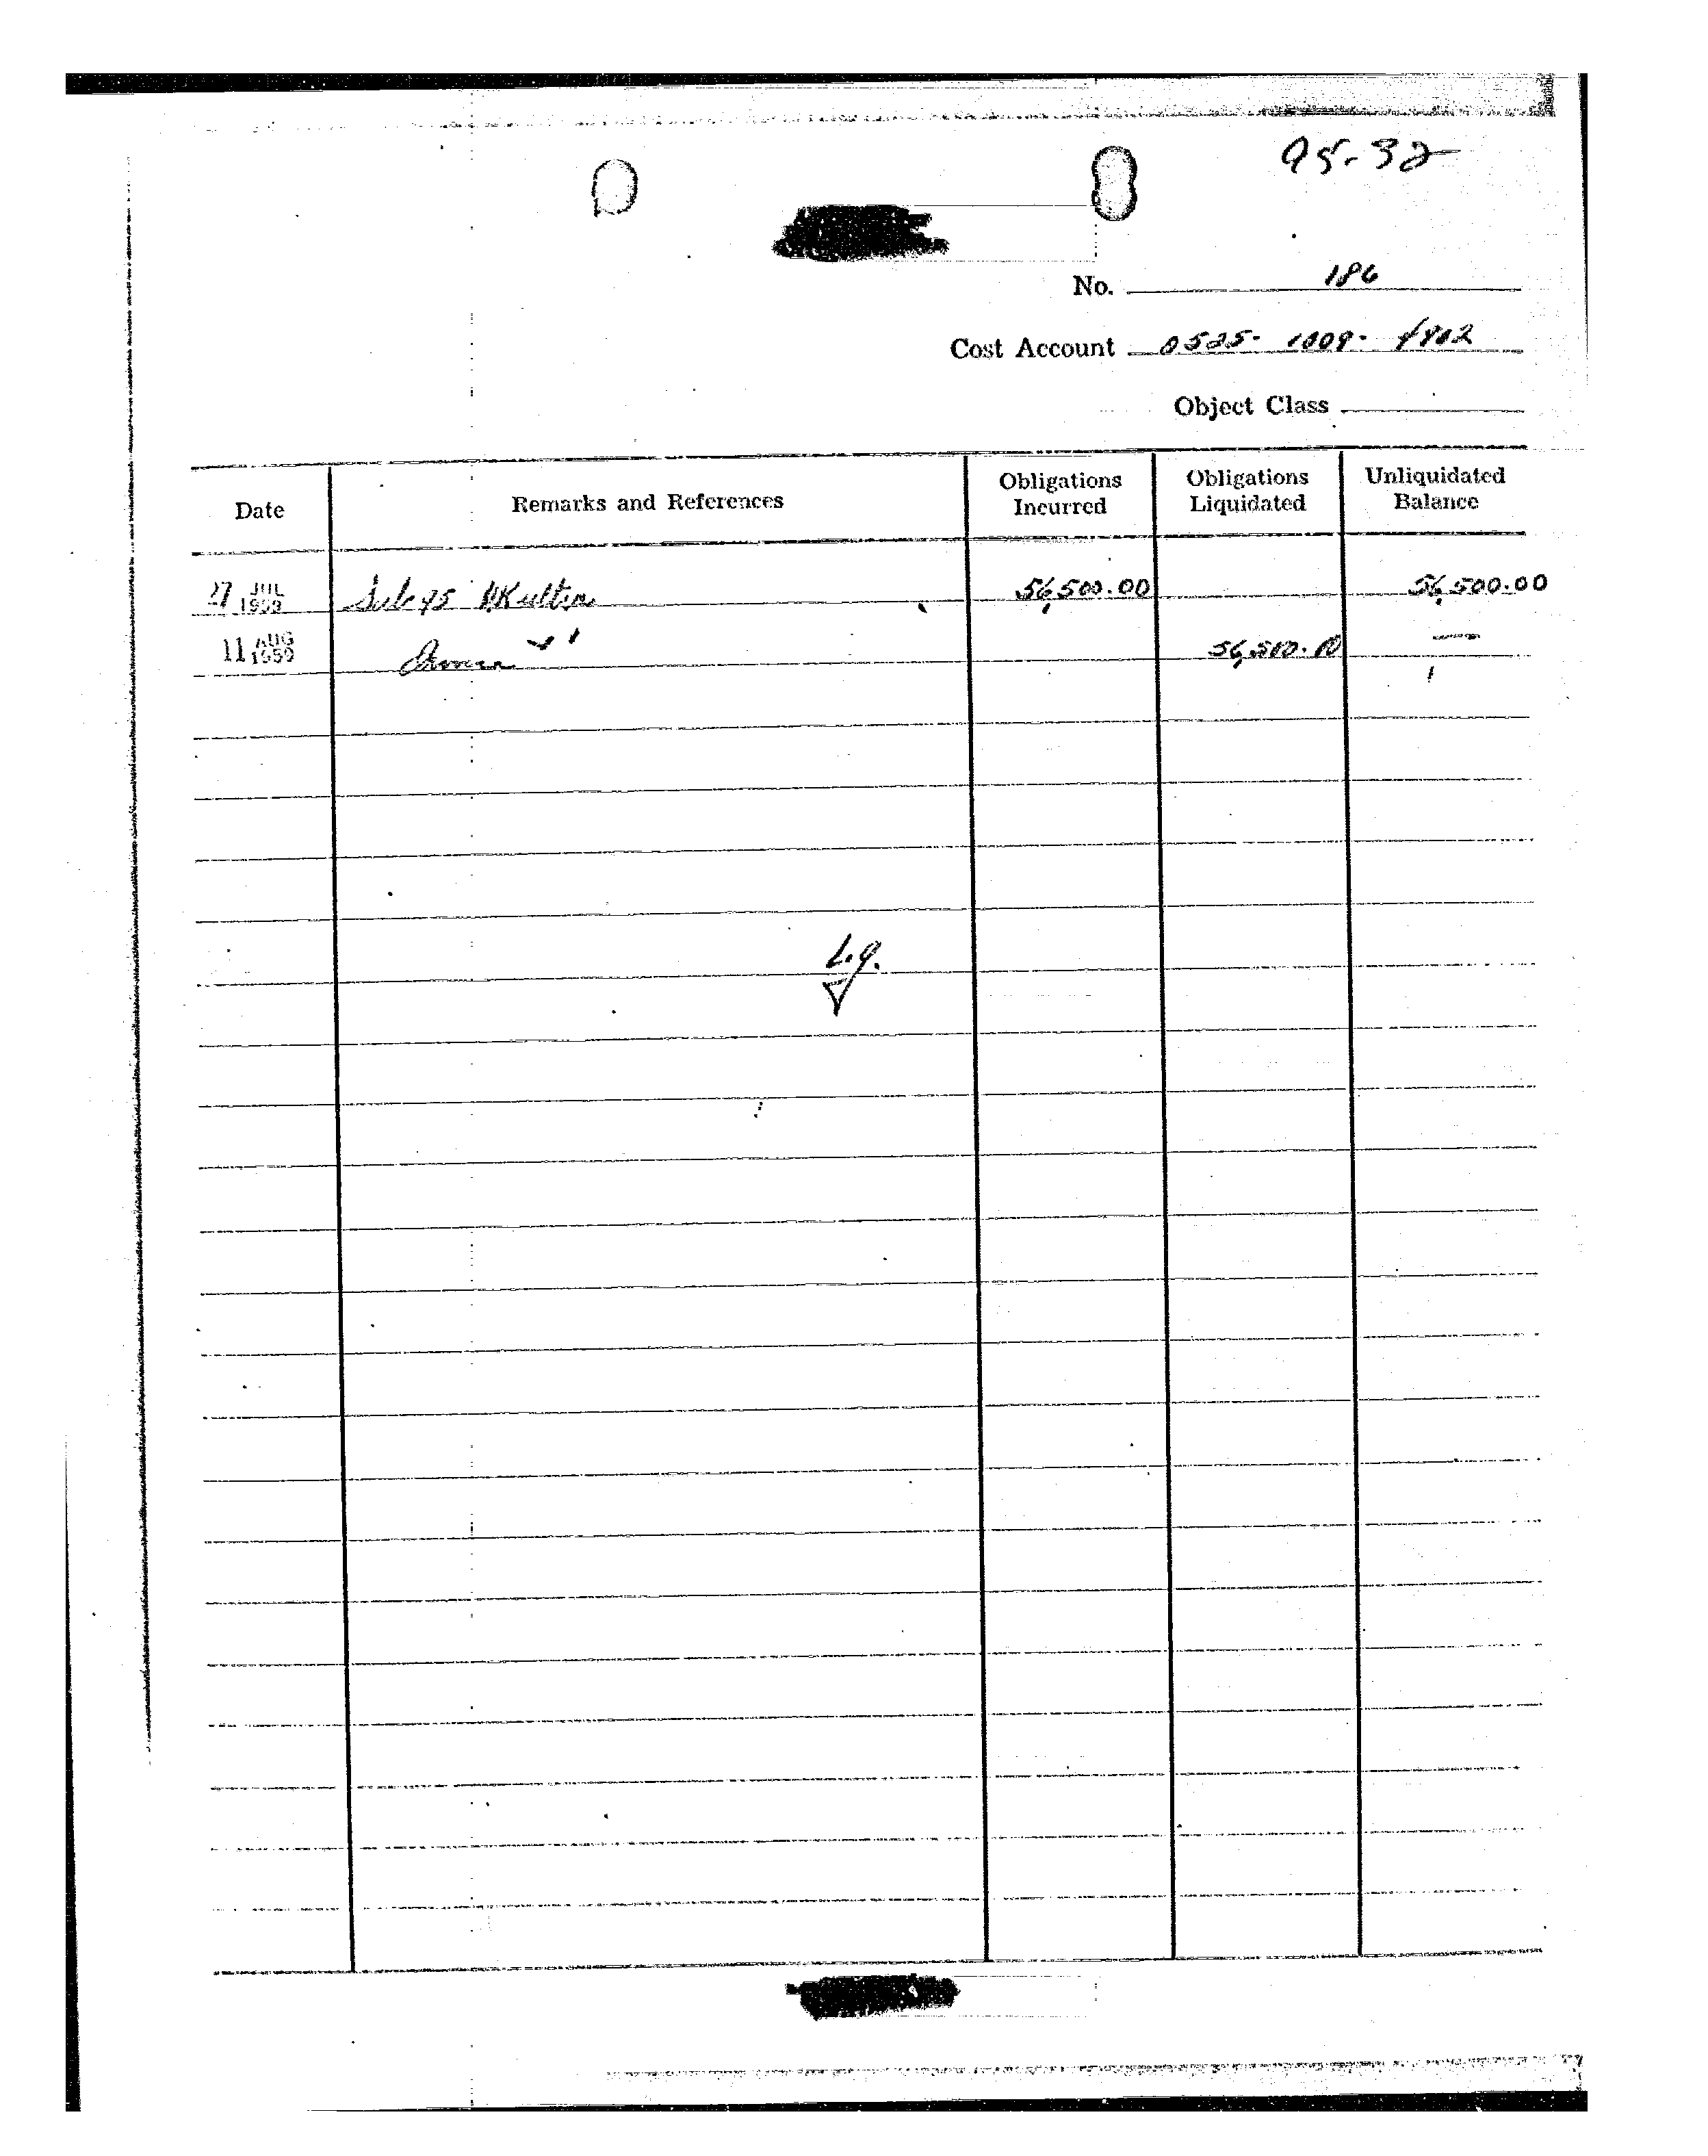 95-32
No. 186
Cost Account 0525-1009-4902
Object Class
Date Remarks and References Obligations Incurred Obligations Liquidated Unliquidated Balance
27 JUL 1959 Sub 45 MKultra 56,500.00 56,500.00
11 AUG 1959 56,500.00 —